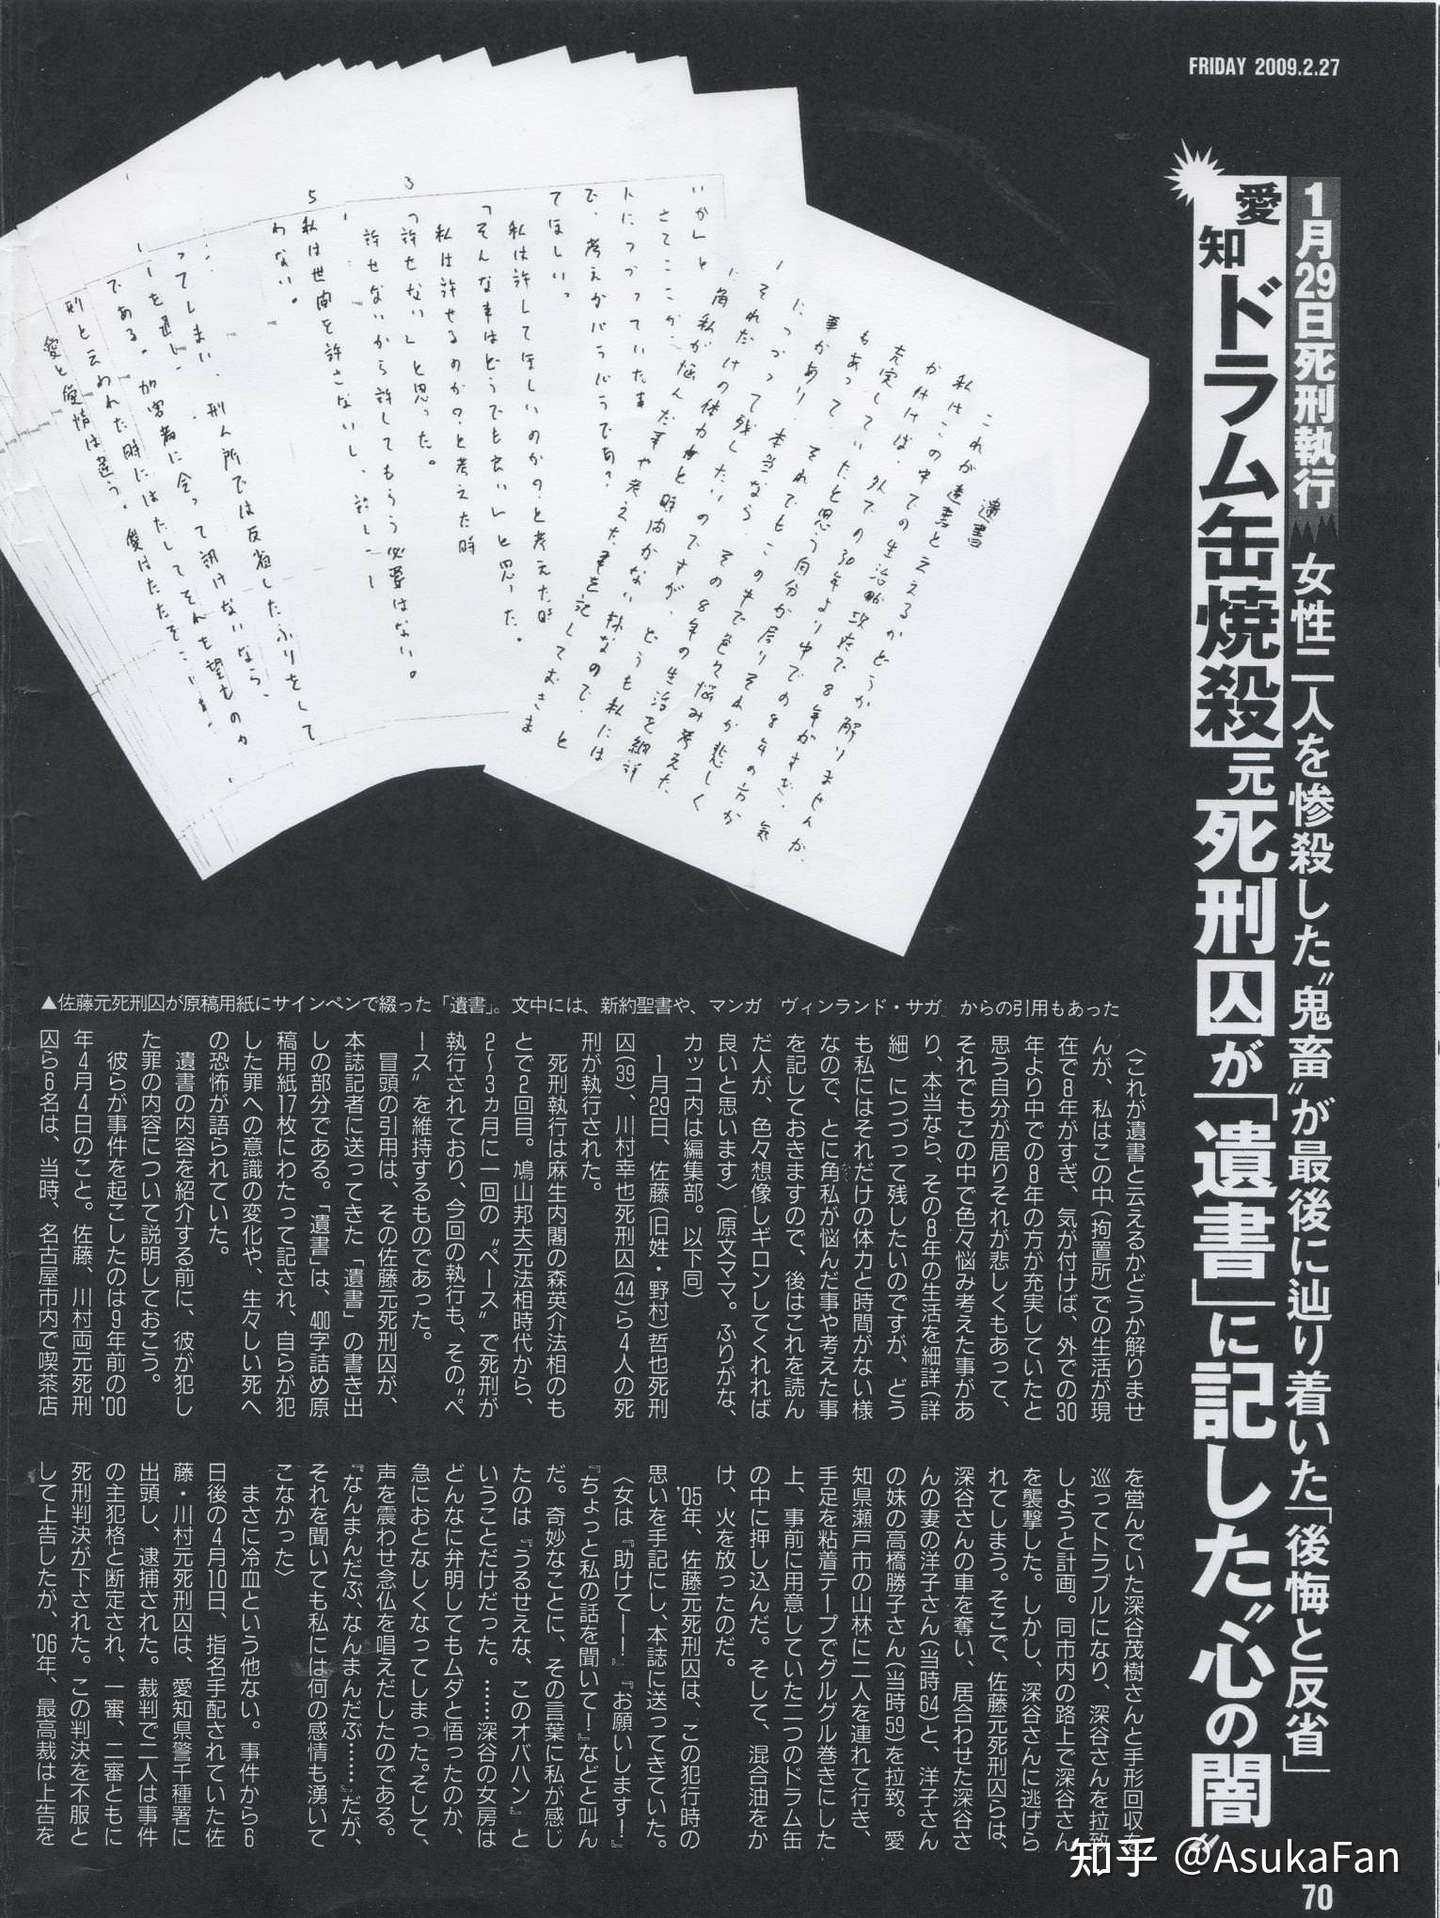 FRIDAY 2009.2.27
1月29日死刑執行
女性二人を惨殺した〝鬼畜〟が最後に辿り着いた「後悔と反省」
愛知ドラム缶焼殺元死刑囚が「遺書」に記した〝心の闇〟
遺書
これが遺書と云えるかどうか解りませんが、
私はこの中での生活が現在で8年がすぎ、気
が付けば、外での30年より中での8年の方が
充実していたと思う自分が居りそれが悲しく
もあって、それでもこの中で色々悩み考えた
事があり、本当なら、その8年の生活を細詳
につづって残したいのですが、どうも私には
それだけの体力と時間がない様なので、と
に角私が悩んだ事や考えた事を記しておきま
いか」と
さてここか
人につづっていた事
で、考えがバラバラであ
てほしい。
私は許してほしいのか?と考えた時
「そんな事はどうでも云い」と思った。
私は許せるのか?と考えた時
3
「許せない」と思った。
許せないから許してもらう必要はない。
5
私は世間を許さないし、許し
わない。
ってしまい、刑ム所では反省したふりをして
を通し
である。加害者に会って訊けないなら、
刑と云われた時にはたしてそれを望むものか
愛と愛情は違う。
▲佐藤元死刑囚が原稿用紙にサインペンで綴った「遺書」。文中には、新約聖書や、マンガ『ヴィンランド・サガ』からの引用もあった
〈これが遺書と云えるかどうか解りませ
んが、私はこの中(拘置所)での生活が現
在で8年がすぎ、気が付けば、外での30
年より中での8年の方が充実していたと
思う自分が居りそれが悲しくもあって、
それでもこの中で色々悩み考えた事があ
り、本当なら、その8年の生活を細詳(詳
細)につづって残したいのですが、どう
も私にはそれだけの体力と時間がない様
なので、とに角私が悩んだ事や考えた事
を記しておきますので、後はこれを読ん
だ人が、色々想像しギロンしてくれれば
良いと思います〉(原文ママ。ふりがな、
カッコ内は編集部。以下同)
1月29日、佐藤(旧姓・野村)哲也死刑
囚(39)、川村幸也死刑囚(44)ら4人の死
刑が執行された。
死刑執行は麻生内閣の森英介法相のも
とで2回目。鳩山邦夫元法相時代から、
2〜3ヵ月に一回の〝ペース〟で死刑が
執行されており、今回の執行も、その〝ペ
ース〟を維持するものであった。
冒頭の引用は、その佐藤元死刑囚が、
本誌記者に送ってきた「遺書」の書き出
しの部分である。「遺書」は、400字詰め原
稿用紙17枚にわたって記され、自らが犯
した罪への意識の変化や、生々しい死へ
の恐怖が語られていた。
遺書の内容を紹介する前に、彼が犯し
た罪の内容について説明しておこう。
彼らが事件を起こしたのは9年前の'00
年4月4日のこと。佐藤、川村両元死刑
囚ら6名は、当時、名古屋市内で喫茶店
を営んでいた深谷茂樹さんと手形回収を
巡ってトラブルになり、深谷さんを拉致
しようと計画。同市内の路上で深谷さん
を襲撃した。しかし、深谷さんに逃げら
れてしまう。そこで、佐藤元死刑囚らは、
深谷さんの車を奪い、居合わせた深谷さ
んの妻の洋子さん(当時64)と、洋子さん
の妹の高橋勝子さん(当時59)を拉致。愛
知県瀬戸市の山林に二人を連れて行き、
手足を粘着テープでグルグル巻きにした
上、事前に用意していた二つのドラム缶
の中に押し込んだ。そして、混合油をか
け、火を放ったのだ。
'05年、佐藤元死刑囚は、この犯行時の
思いを手記にし、本誌に送ってきていた。
〈女は『助けてー!』『お願いします!』
『ちょっと私の話を聞いて!』などと叫ん
だ。奇妙なことに、その言葉に私が感じ
たのは『うるせえな、このオバハン』と
いうことだけだった。……深谷の女房は
どんなに弁明してもムダと悟ったのか、
急におとなしくなってしまった。そして、
声を震わせ念仏を唱えだしたのである。
『なんまんだぶ、なんまんだぶ……』だが、
それを聞いても私には何の感情も湧いて
こなかった〉
まさに冷血という他ない。事件から6
日後の4月10日、指名手配されていた佐
藤・川村元死刑囚は、愛知県警千種署に
出頭し、逮捕された。裁判で二人は事件
の主犯格と断定され、一審、二審ともに
死刑判決が下された。この判決を不服と
して上告したが、'06年、最高裁は上告を
知乎 @AsukaFan
70